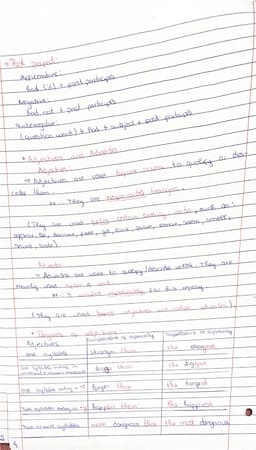 Past perfect:
Affirmative:
had ('d) + past participle
Negative:
had not + past participle
Interrogative:
(question word) + had + subject + past participle
* Adjectives and Adverbs:
Adjectives
→ Adjectives are used before nouns to qualify or des-
cribe them.
ex: They are
(They are used after certain linking verbs, such as:
appear, be, become, feel, get, look, seem, smell,
sound, taste).
Adverbs
→ Adverbs are used to qualify/describe verbs. They are
mainly used after a verb
ex: I waited for his
(They are used before adjectives and other adverbs.)
* Degrees of adjectives:
Adjectives
Comparative of superiority
Superlative of superiority
one syllable
stronger than
the strongest
one syllable ending in
bigger than
the biggest
one syllable ending in
larger than
the largest
Two syllables ending in
happier than
the happiest
Two or more syllables
more dangerous than
the most dangerous